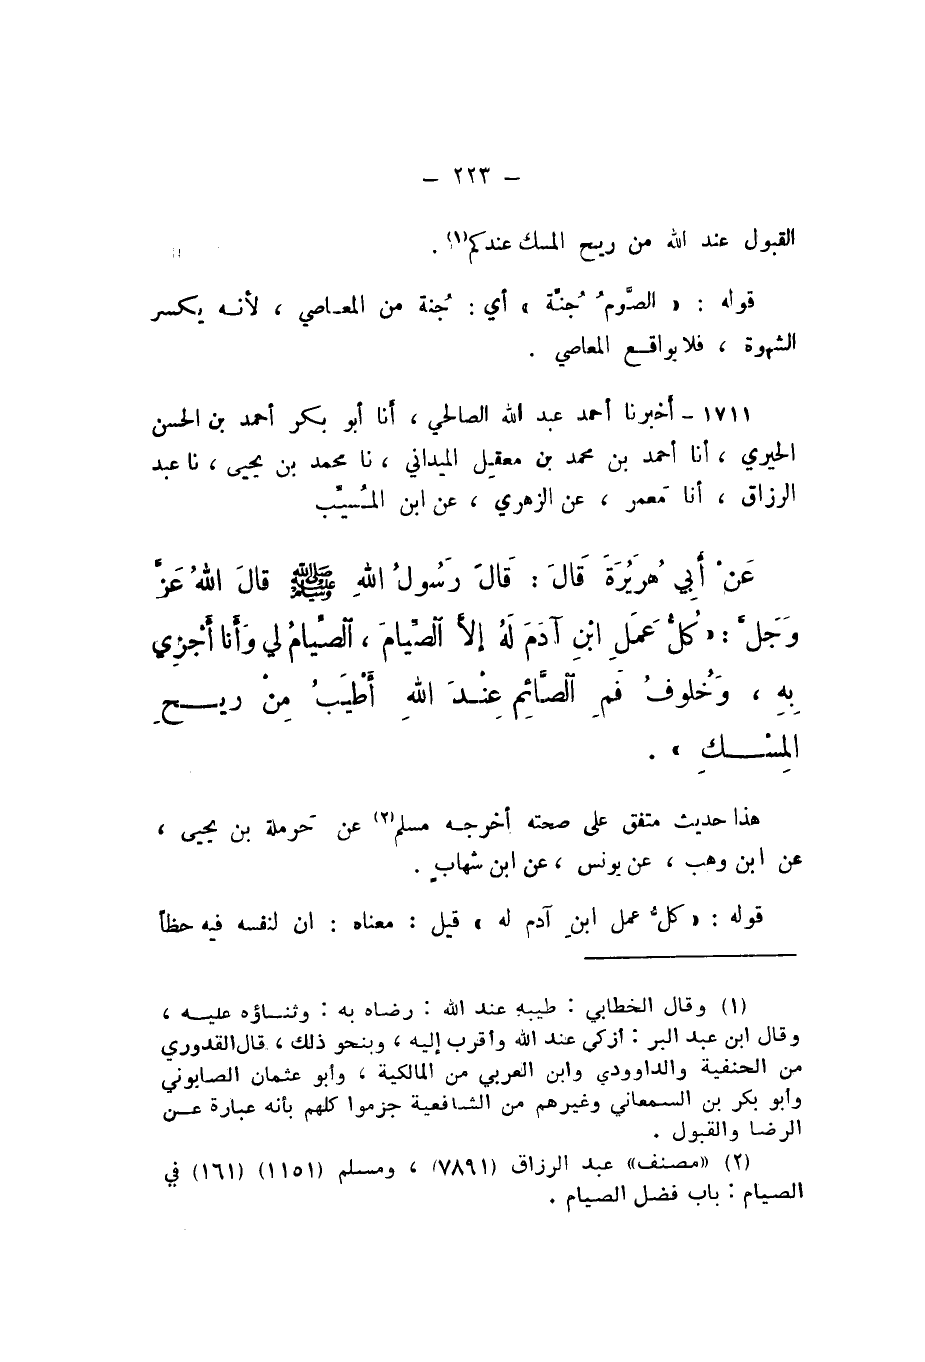 - ٢٢٣ -
القبول عند الله من ريح المسك عندكم(١) .
قوله : « الصَّومُ جُنَّة » أي : جُنة من المعاصي ، لأنه يكسر
الشهوة ، فلا يواقع المعاصي .
١٧١١ - أخبرنا أحمد عبد الله الصالحي ، أنا أبو بكر أحمد بن الحسن
الحيري ، أنا أحمد بن محمد بن معقل الميداني ، نا محمد بن يحيى ، نا عبد
الرزاق ، أنا مَعمر ، عن الزهري ، عن ابن المُسيِّب
عَنْ أَبِي هُرَيْرَةَ قَالَ : قَالَ رَسُولُ اللهِ ﷺ قالَ اللهُ عَزَّ
وَجَلَّ : « كُلُّ عَمَلِ ابْنِ آدَمَ لَهُ إلاَّ الصِّيامَ ، الصِّيامُ لي وَأَنا أَجْزِي
بِهِ ، وَخُلوفُ فَمِ الصَّائِمِ عِنْدَ اللهِ أَطْيَبُ مِنْ ريحِ
المِسْكِ » .
هذا حديث متفق على صحته أخرجه مسلم(٢) عن حَرملة بن يحيى ،
عن ابن وهب ، عن يونس ، عن ابن شهابٍ .
قوله : « كلُّ عمل ابنِ آدم له » قيل : معناه : ان لنفسه فيه حظاً
(١) وقال الخطابي : طيبه عند الله : رضاه به : وثناؤه عليه ،
وقال ابن عبد البر : أزكى عند الله وأقرب إليه ، وبنحو ذلك ، قال القدوري
من الحنفية والداوودي وابن العربي من المالكية ، وأبو عثمان الصابوني
وأبو بكر بن السمعاني وغيرهم من الشافعية جزموا كلهم بأنه عبارة عن
الرضا والقبول .
(٢) «مصنف» عبد الرزاق (٧٨٩١) ، ومسلم (١١٥١) (١٦١) في
الصيام : باب فضل الصيام .